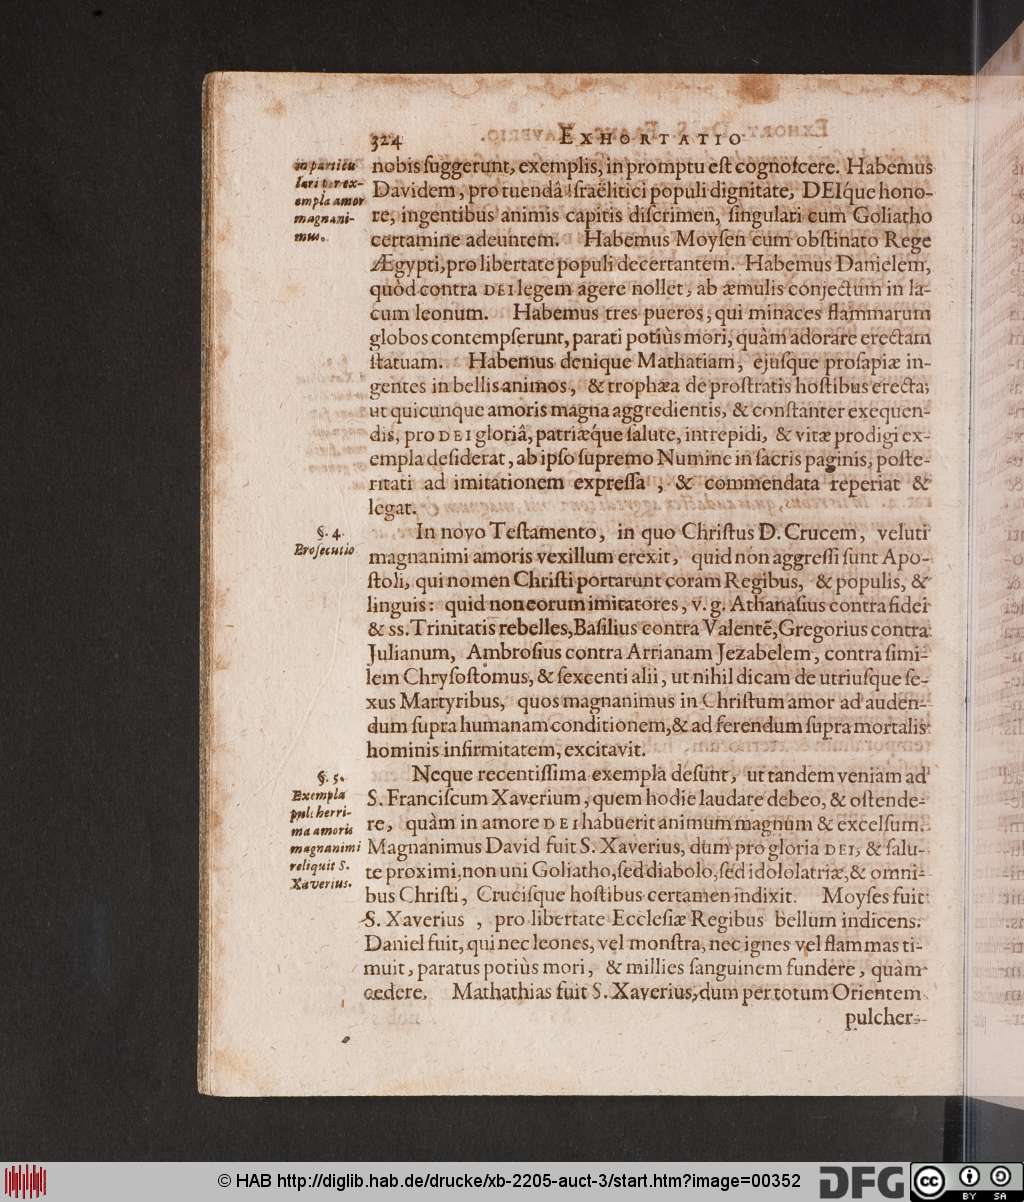 324 EXHORTATIO
in particu
lari per ex-
empla amor
magnani-
mus.
nobis ſuggerunt, exemplis, in promptu eſt cognoſcere. Habemus
Davidem, pro tuendâ Iſraëlitici populi dignitate, DEIq́ue hono-
re, ingentibus animis capitis diſcrimen, ſingulari cum Goliatho
certamine adeuntem. Habemus Moyſen cum obſtinato Rege
Ægypti, pro libertate populi decertantem. Habemus Danielem,
quòd contra DEI legem agere nollet, ab æmulis conjectum in la-
cum leonum. Habemus tres pueros, qui minaces flammarum
globos contempſerunt, parati potiùs mori, quàm adorare erectam
ſtatuam. Habemus denique Mathatiam, ejuſque proſapiæ in-
gentes in bellis animos, & trophæa de proſtratis hoſtibus erecta;
ut quicunque amoris magna aggredientis, & conſtanter exequen-
dis, pro DEI gloriâ, patriæq́ue ſalute, intrepidi, & vitæ prodigi ex-
empla deſiderat, ab ipſo ſupremo Numine in ſacris paginis, poſte-
ritati ad imitationem expreſſa, & commendata reperiat &
legat.
§. 4.
Proſecutio
In novo Teſtamento, in quo Chriſtus D. Crucem, veluti
magnanimi amoris vexillum erexit, quid non aggreſſi ſunt Apo-
ſtoli, qui nomen Chriſti portarunt coram Regibus, & populis, &
linguis: quid non eorum imitatores, v. g. Athanaſius contra fidei
& ss. Trinitatis rebelles, Baſilius contra Valentē, Gregorius contra
Julianum, Ambroſius contra Arrianam Jezabelem, contra ſimi-
lem Chryſoſtomus, & ſexcenti alii, ut nihil dicam de utriuſque ſe-
xus Martyribus, quos magnanimus in Chriſtum amor ad auden-
dum ſupra humanam conditionem, & ad ferendum ſupra mortalis
hominis infirmitatem, excitavit.
§. 5.
Exempla
pulcherri-
ma amoris
magnanimi
reliquit S.
Xaverius.
Neque recentiſſima exempla deſunt, ut tandem veniam ad
S. Franciſcum Xaverium, quem hodie laudare debeo, & oſtende-
re, quàm in amore DEI habuerit animum magnum & excelſum.
Magnanimus David fuit S. Xaverius, dum pro gloria DEI, & ſalu-
te proximi, non uni Goliatho, ſed diabolo, ſed idololatriæ, & omni-
bus Chriſti, Cruciſque hoſtibus certamen indixit. Moyſes fuit
S. Xaverius, pro libertate Eccleſiæ Regibus bellum indicens.
Daniel fuit, qui nec leones, vel monſtra, nec ignes vel flammas ti-
muit, paratus potiùs mori, & millies ſanguinem fundere, quàm
cedere. Mathathias fuit S. Xaverius, dum per totum Orientem
pulcher-
© HAB http://diglib.hab.de/drucke/xb-2205-auct-3/start.htm?image=00352
DFG
cc BY SA